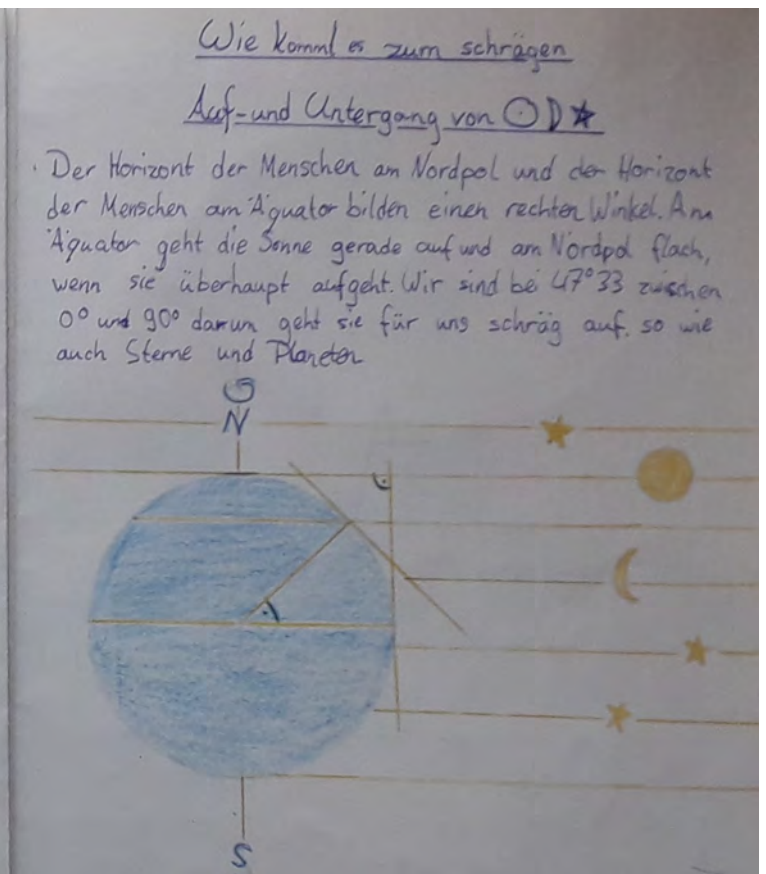 Wie kommt es zum schrägen
Auf- und Untergang von ☉☽★
Der Horizont der Menschen am Nordpol und der Horizont
der Menschen am Äquator bilden einen rechten Winkel. Am
Äquator geht die Sonne gerade auf und am Nordpol flach,
wenn sie überhaupt aufgeht. Wir sind bei 47°33 zwischen
0° und 90° darum geht sie für uns schräg auf. so wie
auch Sterne und Planeten
N
S